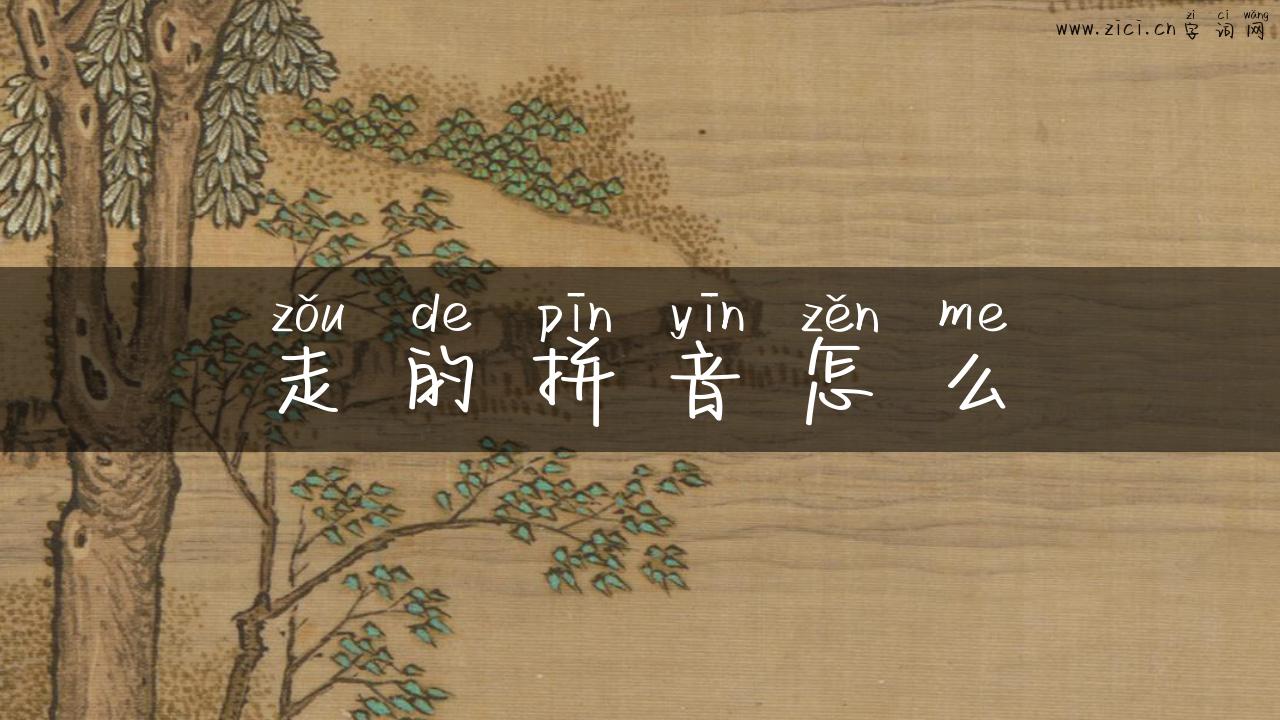 zì cí wǎng
www.zici.cn 字词网
zǒu de pīn yīn zěn me
走的拼音怎么